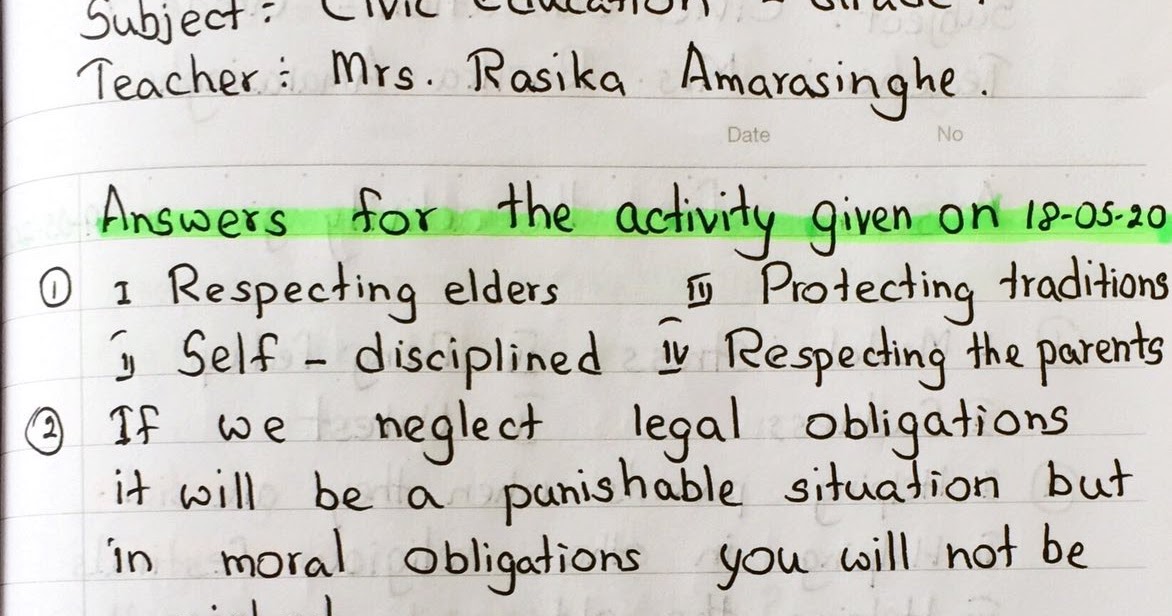 Subject : Civic Education -
Teacher : Mrs. Rasika Amarasinghe.
Date No
Answers for the activity given on 18-05-20
① I Respecting elders III Protecting traditions
II Self - disciplined IV Respecting the parents
② If we neglect legal obligations
it will be a punishable situation but
in moral obligations you will not be